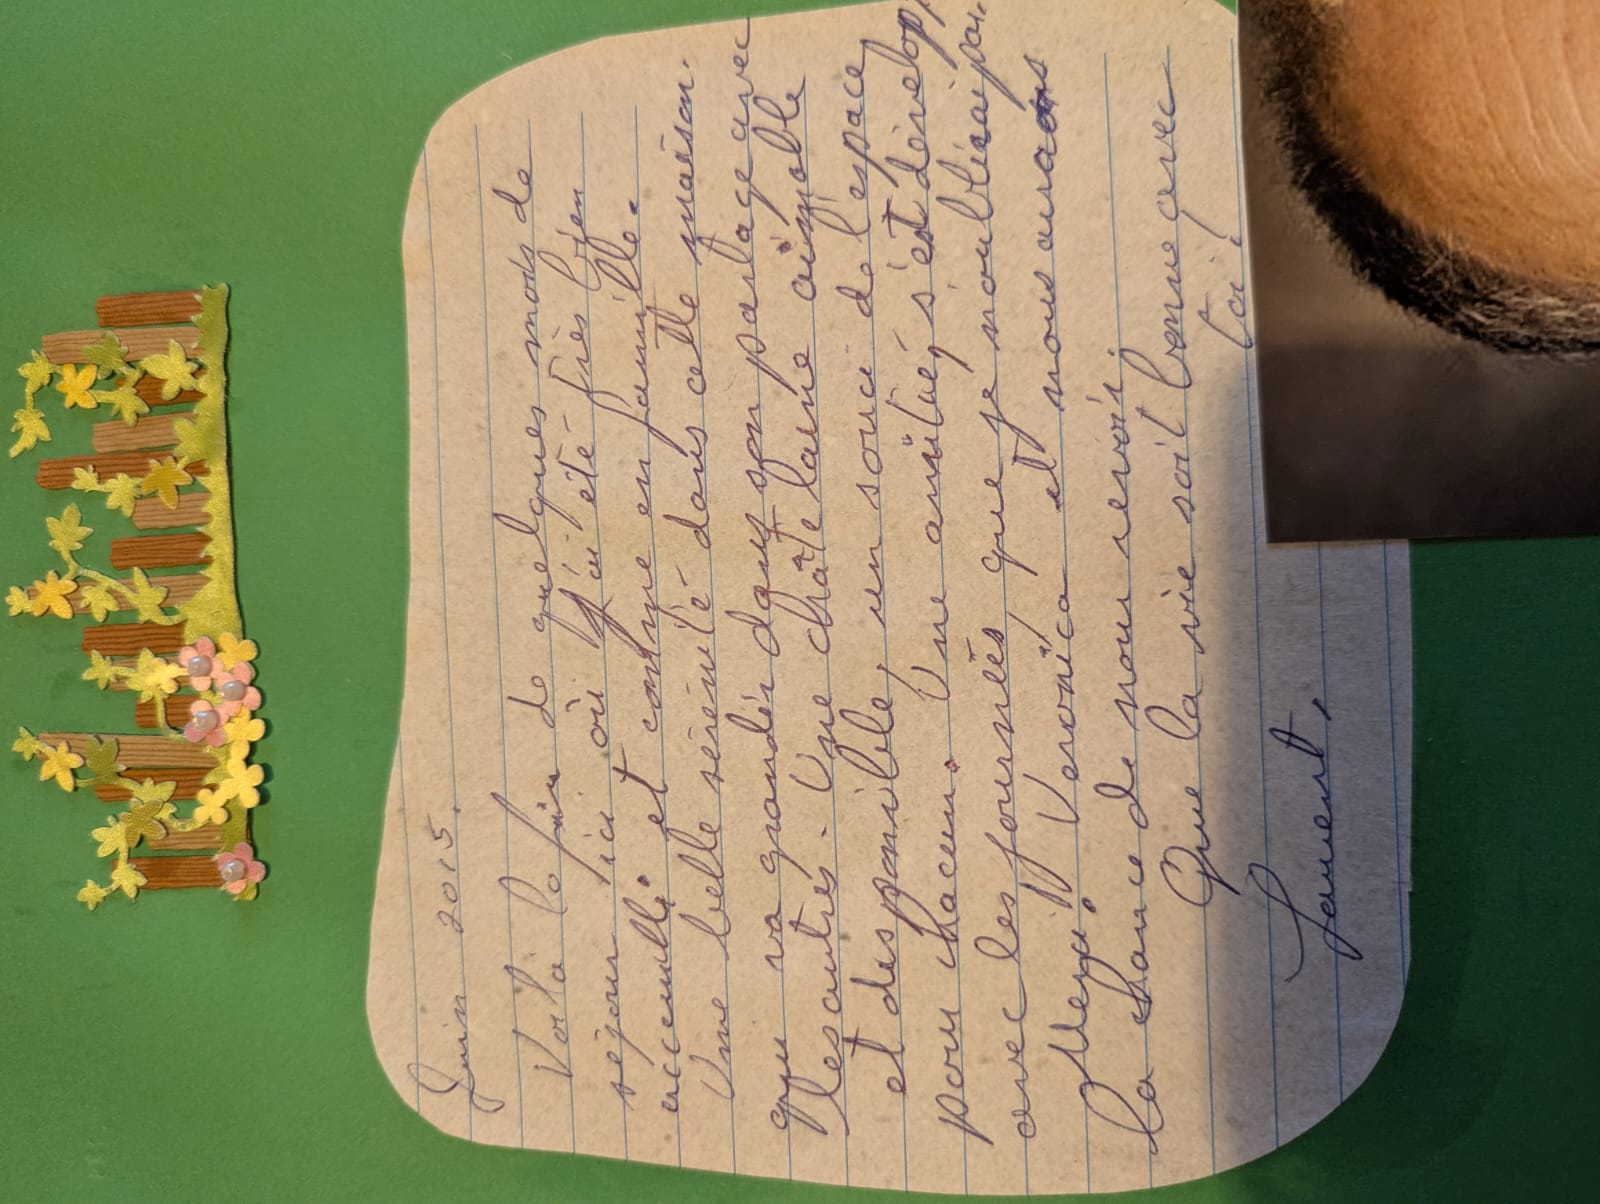 Juin 2015.
Voilà la fin de quelques mois de
séjour ici où j'ai été très bien
accueilli et comme en famille.
Une belle sérénité dans cette maison.
qui va grandir dans son partage avec
les autres. Une châtelaine aimable
et disponible, un souci de l'espace
pour chacun. Une amitié, s'est dévelop
avec les journées que je n'oublierai pas.
Merci Veronica et nous aurons
la chance de nous revoir
Que la vie soit bonne avec
toi,